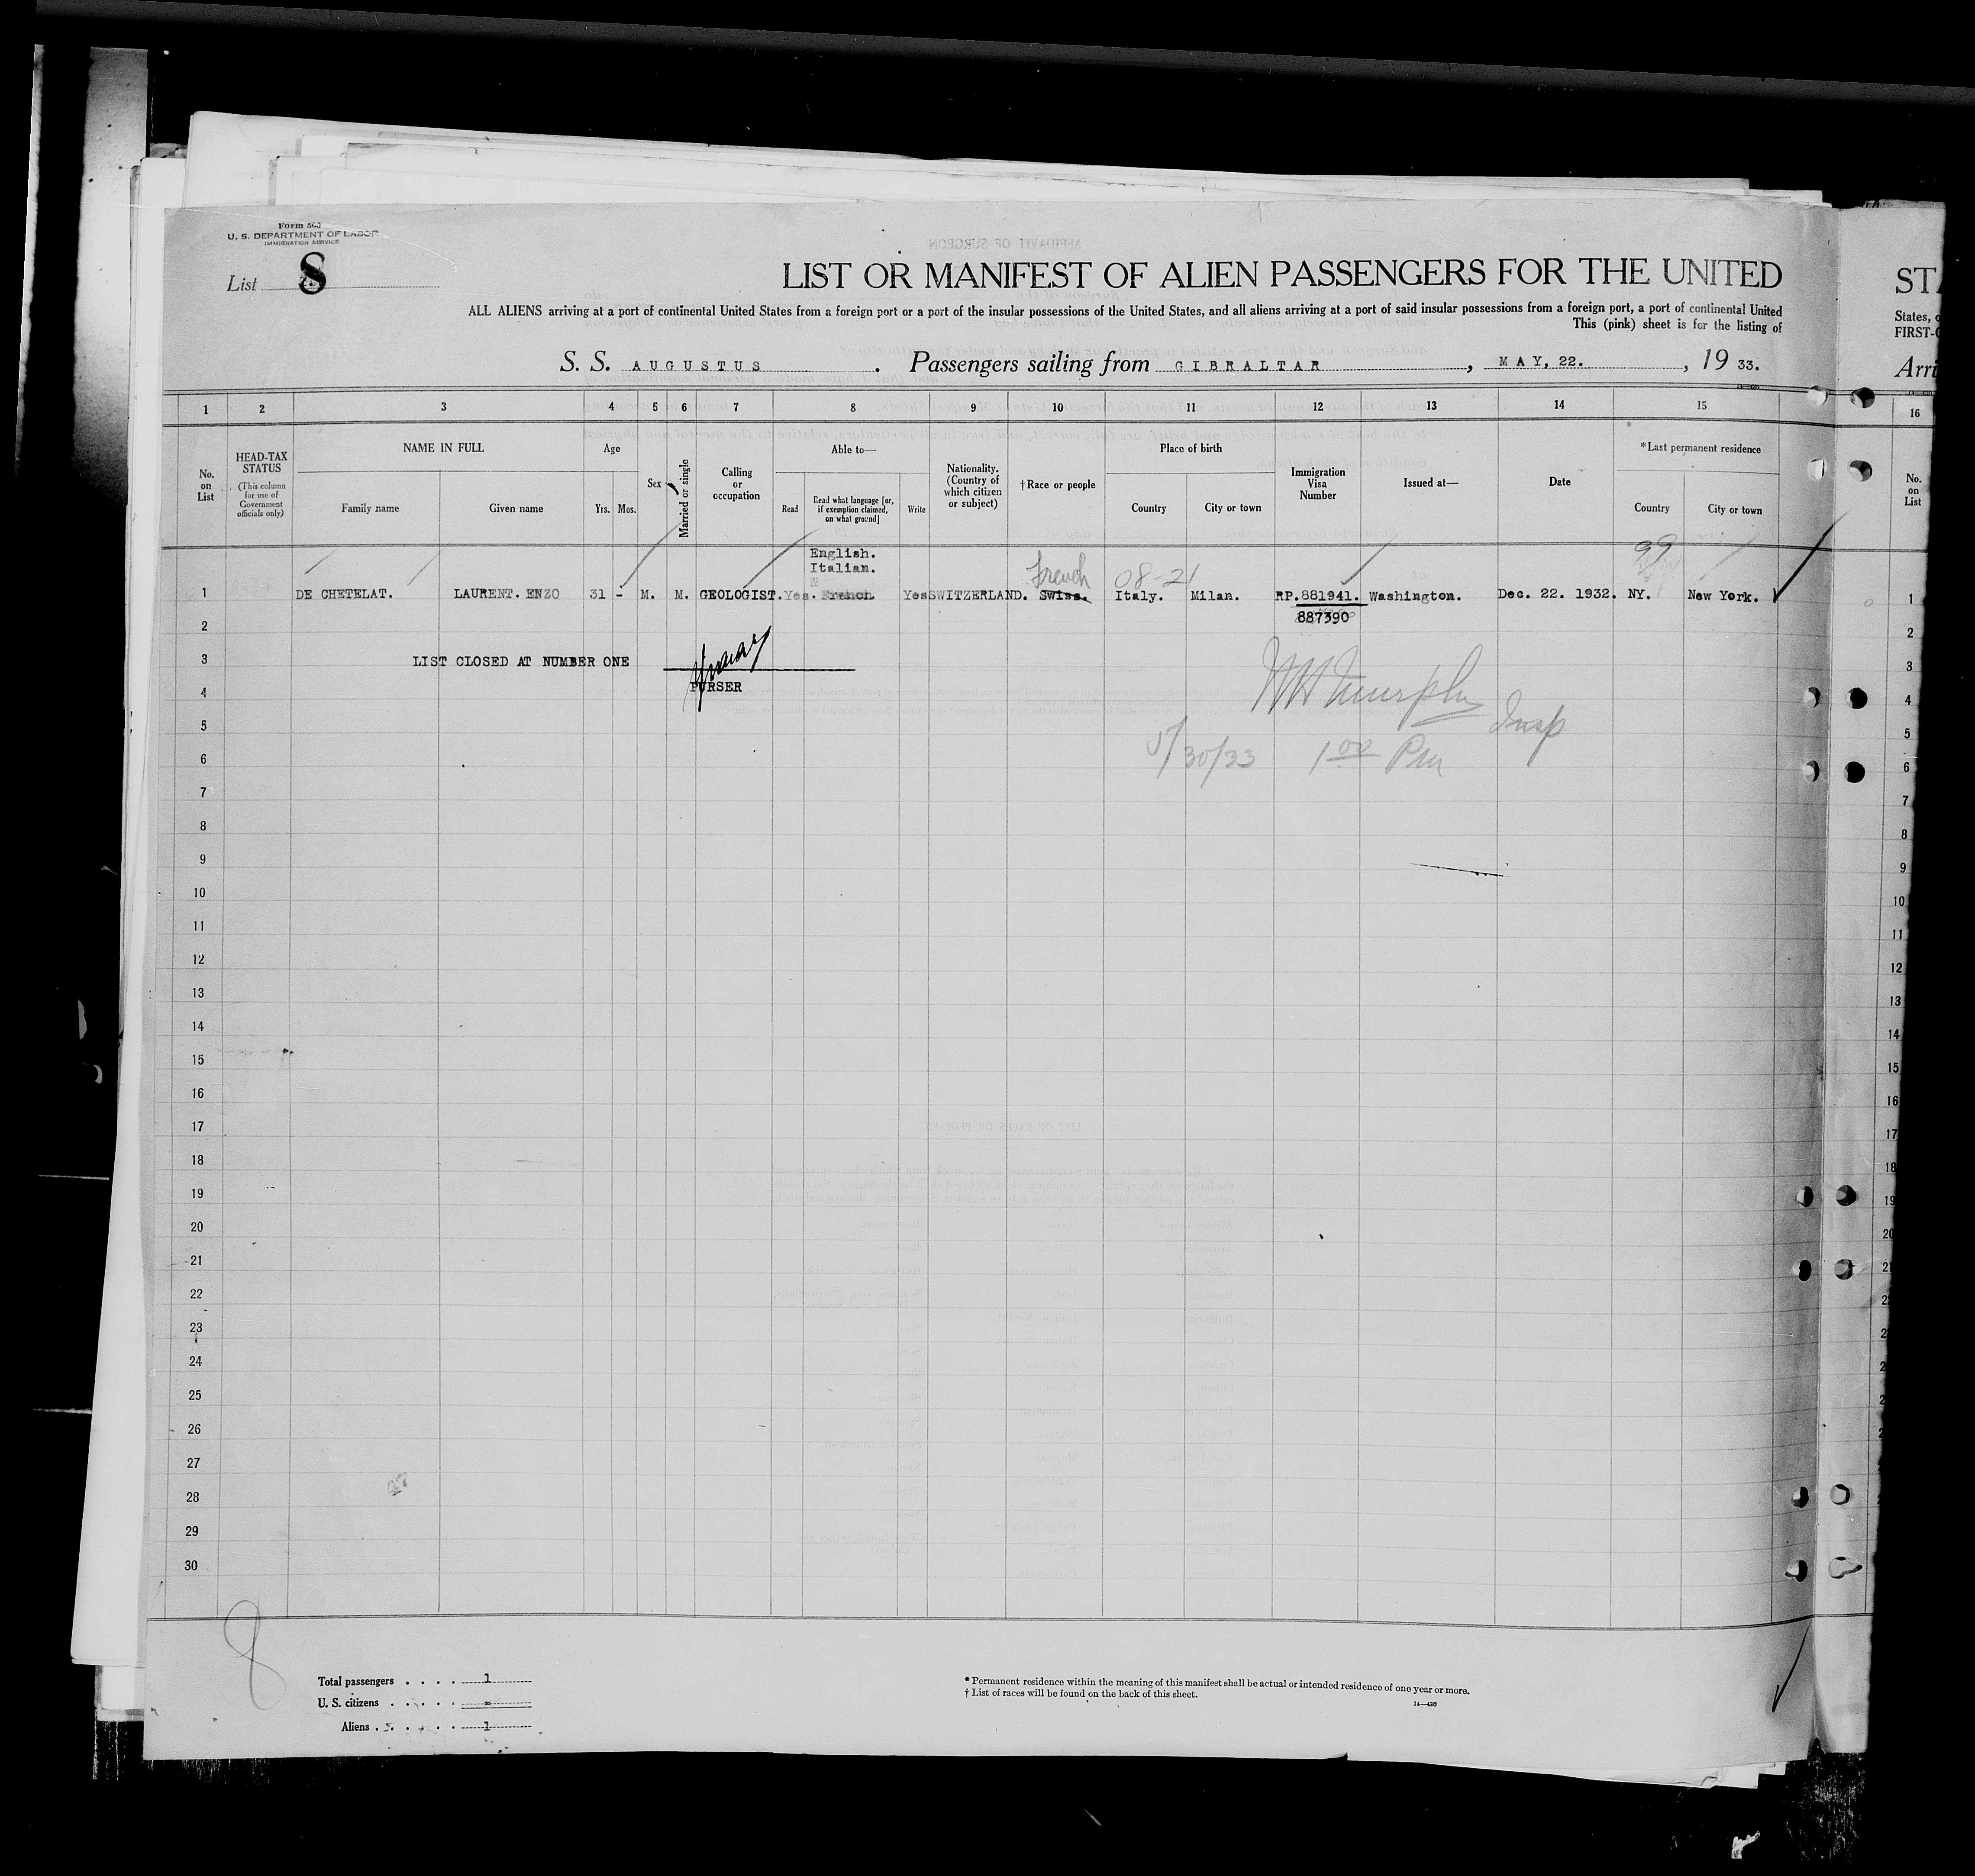 Form 563
U. S. DEPARTMENT OF LABOR
IMMIGRATION SERVICE
List 8
LIST OR MANIFEST OF ALIEN PASSENGERS FOR THE UNITED
ALL ALIENS arriving at a port of continental United States from a foreign port or a port of the insular possessions of the United States, and all aliens arriving at a port of said insular possessions from a foreign port, a port of continental United
This (pink) sheet is for the listing of
S. S. AUGUSTUS . Passengers sailing from GIBRALTAR , MAY, 22. , 19 33.
1 2 3 4 5 6 7 8 9 10 11 12 13 14 15
No. on List
HEAD-TAX STATUS (This column for use of Government officials only)
NAME IN FULL
Family name
Given name
Age
Yrs. Mos.
Sex
Married or single
Calling or occupation
Able to—
Read
Read what language [or, if exemption claimed, on what ground]
Write
Nationality. (Country of which citizen or subject)
†Race or people
Place of birth
Country
City or town
Immigration Visa Number
Issued at—
Date
*Last permanent residence
Country
City or town
English.
Italian.
French
08-21
99
1 DE CHETELAT. LAURENT. ENZO 31 - M. M. GEOLOGIST. Yes. French. Yes SWITZERLAND. Swiss. Italy. Milan. RP.881941. Washington. Dec. 22. 1932. NY. New York.
887390
2
3 LIST CLOSED AT NUMBER ONE
PURSER
4
WH Murphy Insp
5
6
5/30/33 1 00 PM
7
8
9
10
11
12
13
14
15
16
17
18
19
20
21
22
23
24
25
26
27
28
29
30
8
Total passengers . . . . 1
U. S. citizens . . . . . -
Aliens . . . . . . 1
* Permanent residence within the meaning of this manifest shall be actual or intended residence of one year or more.
† List of races will be found on the back of this sheet.
14—430
ST
States,
FIRST-
Arri
16
No. on List
1
2
3
4
5
6
7
8
9
10
11
12
13
14
15
16
17
18
19
20